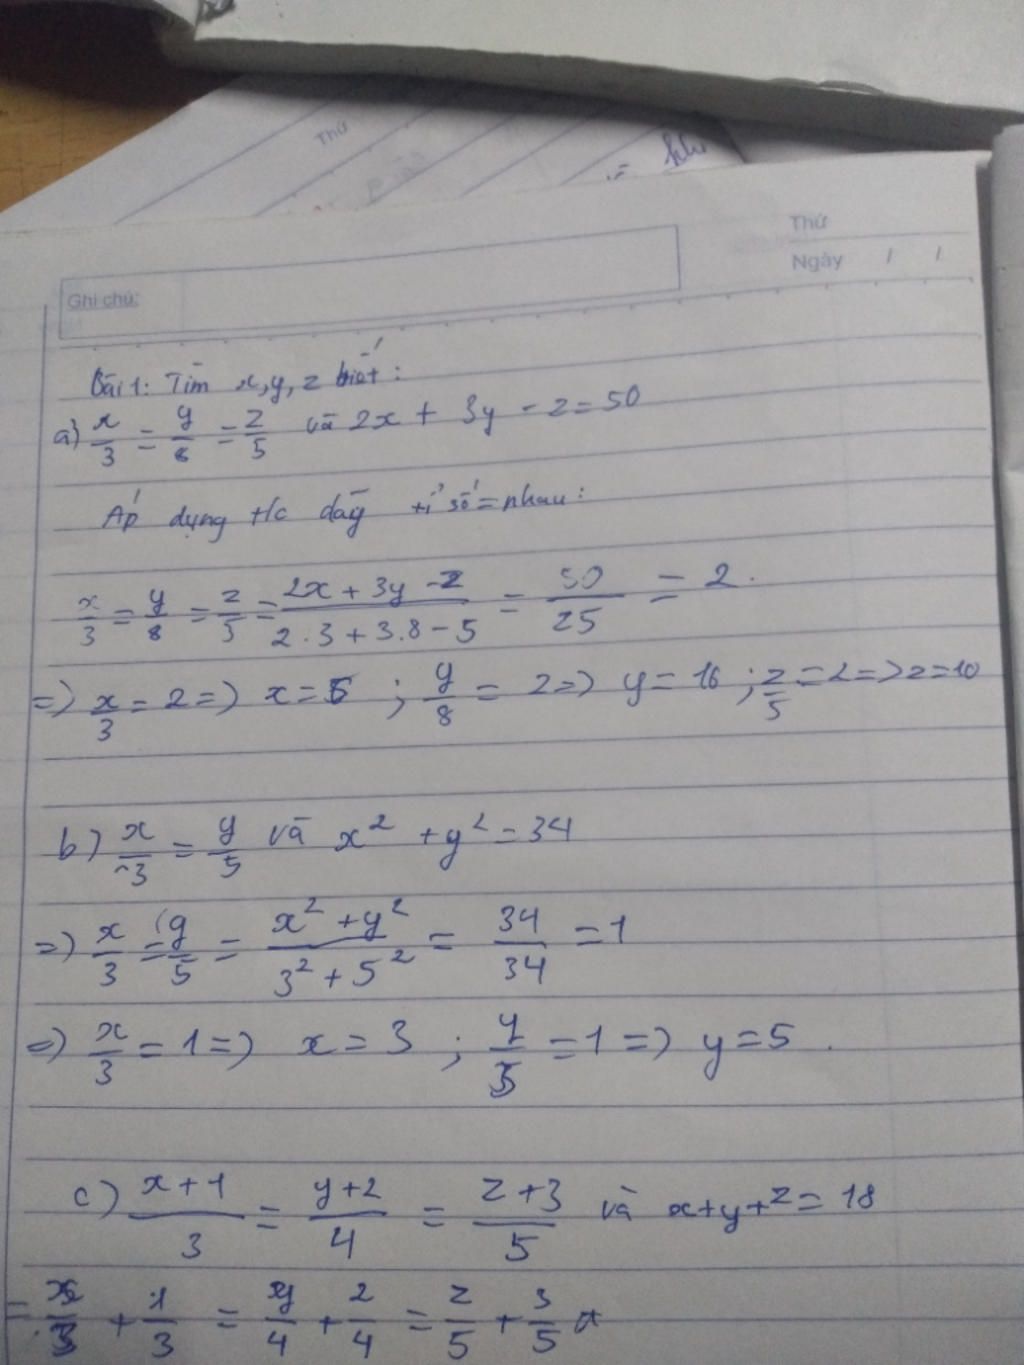 Thứ
Thứ
Ngày / /
Ghi chú:
Bài 1: Tìm x, y, z biết:
a) x/3 = y/8 = z/5 và 2x + 3y - z = 50
Áp dụng t/c dãy tỉ số = nhau:
x/3 = y/8 = z/5 = (2x + 3y - z)/(2.3 + 3.8 - 5) = 50/25 = 2.
=> x/3 = 2 => x = 6 ; y/8 = 2 => y = 16 ; z/5 = 2 => z = 10
b) x/3 = y/5 và x² + y² = 34
=> x/3 = y/5 = (x² + y²)/(3² + 5²) = 34/34 = 1
=> x/3 = 1 => x = 3 ; y/5 = 1 => y = 5.
c) (x+1)/3 = (y+2)/4 = (z+3)/5 và x+y+z = 18
= x/3 + 1/3 = y/4 + 2/4 = z/5 + 3/5